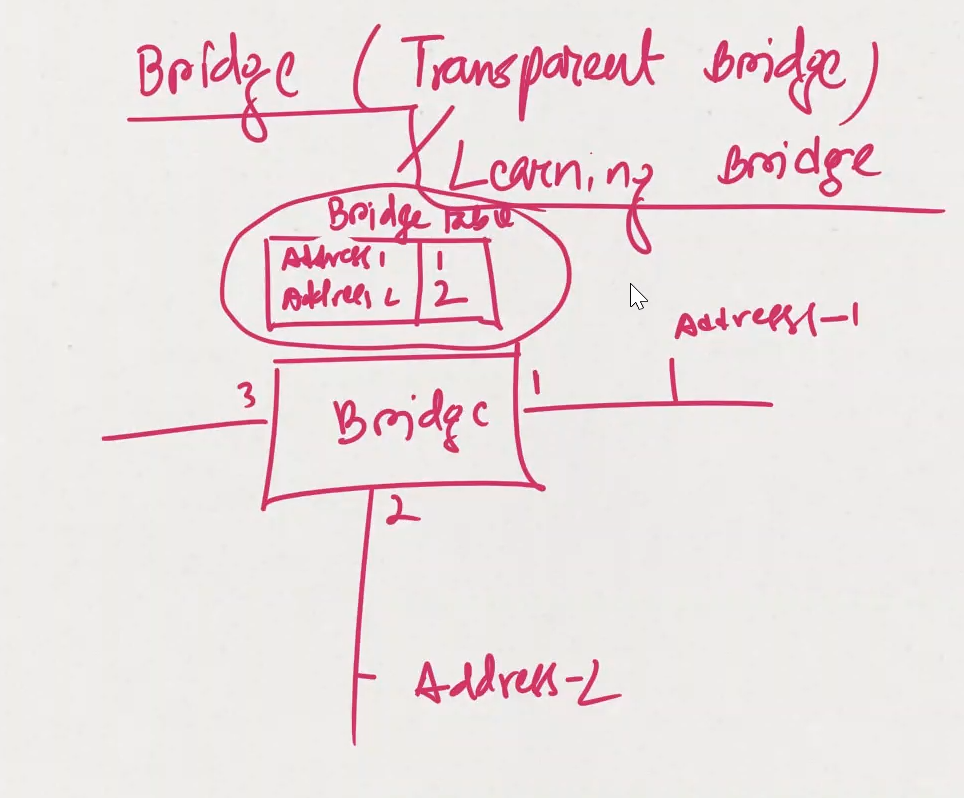 Bridge (Transparent Bridge)
/ Learning Bridge
Bridge Table
Address 1 1
Address 2 2
Address-1
3 1
Bridge
2
Address-2